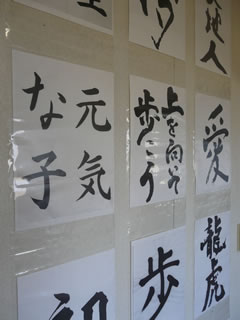 地人
元気
な子
上を向いて
歩こう
愛
初
歩
龍虎